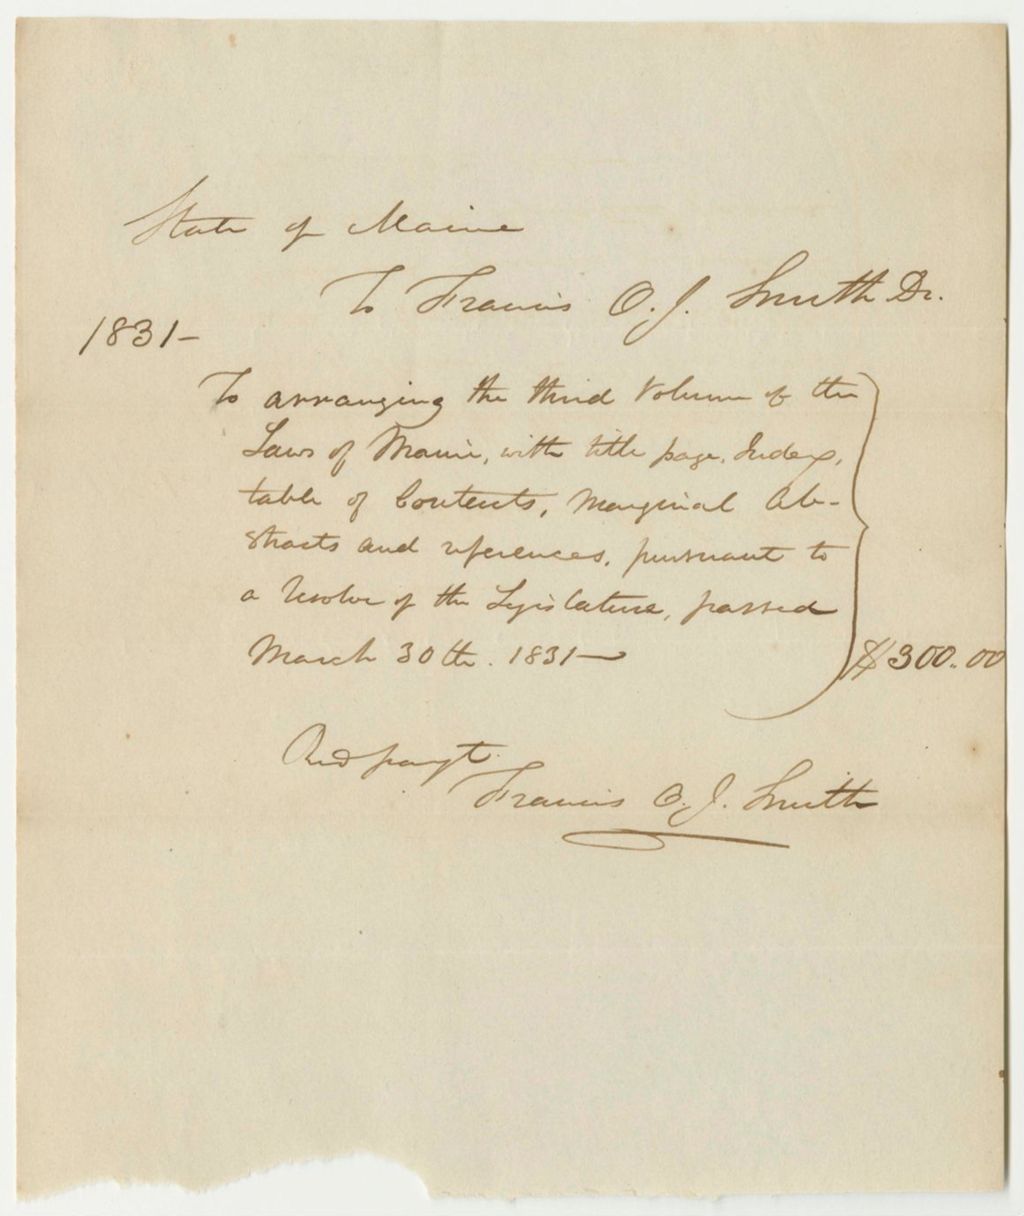 State of Maine
To Francis O. J. Smith Dr.
1831-
To arranging the third Volume of the
Laws of Maine, with title page, Index,
table of Contents, Marginal Ab-
stracts and references, pursuant to
a Resolve of the Legislature, passed
March 30th. 1831— $300.00
Recd payt.
Francis O. J. Smith